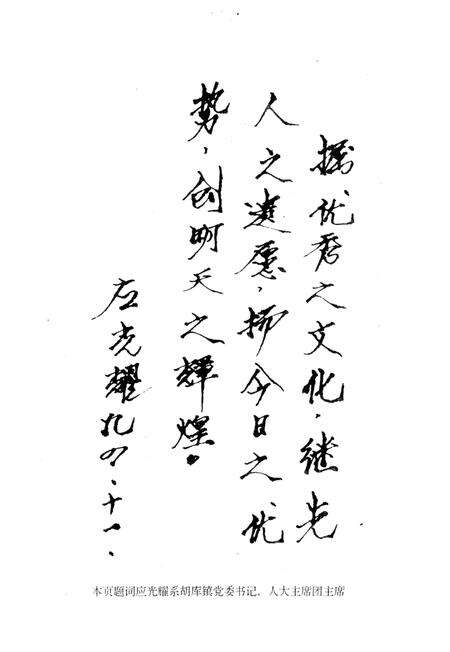 掘优秀之文化，继先
人之遗愿，扬今日之优
势，创明天之辉煌。
应光耀九四、十一、
本页题词应光耀系胡库镇党委书记、人大主席团主席